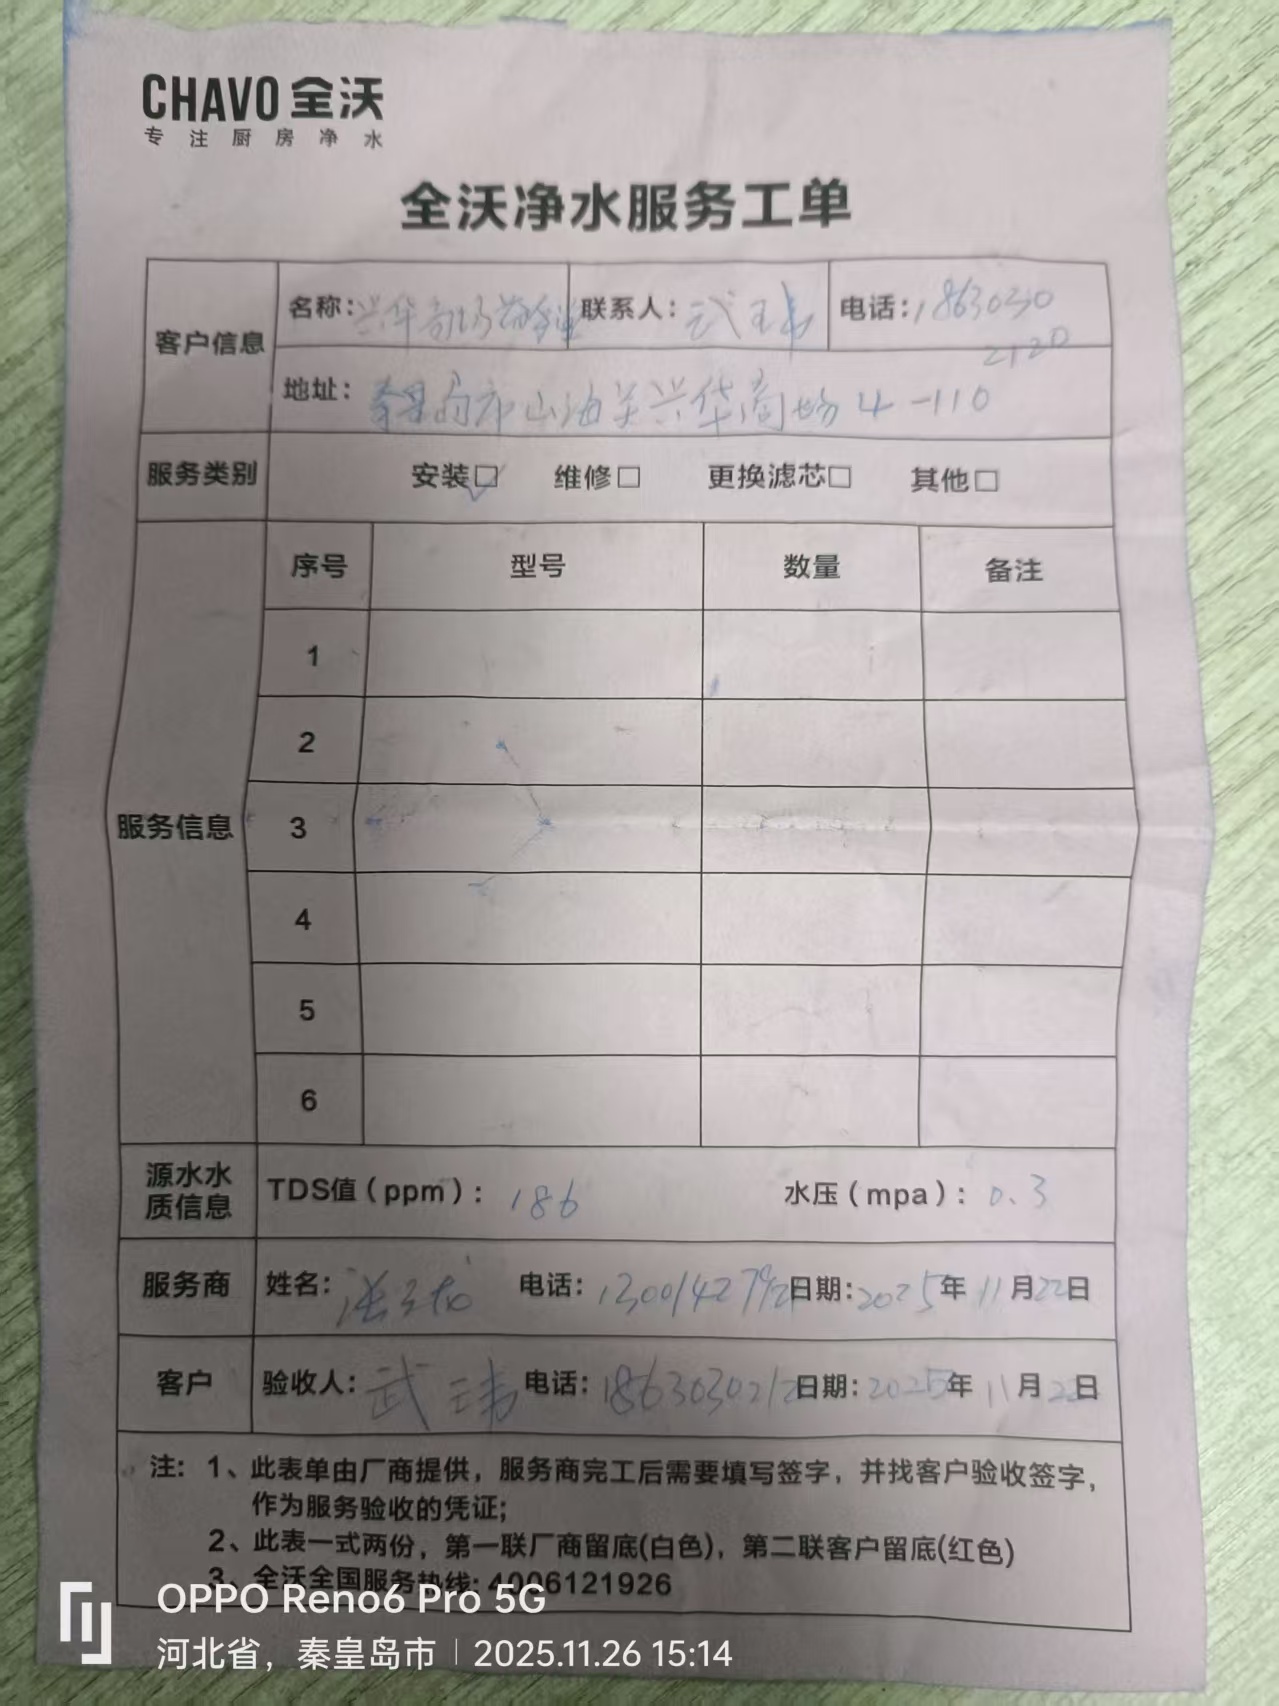 CHAVO 全沃
专注厨房净水
全沃净水服务工单
客户信息 名称：兴华商场 联系人：武玮 电话：18630302120
地址：秦皇岛市山海关兴华商场4-110
服务类别 安装☑ 维修□ 更换滤芯□ 其他□
服务信息 序号 型号 数量 备注
1
2
3
4
5
6
源水水质信息 TDS值（ppm）：186 水压（mpa）：0.3
服务商 姓名：张 电话：1300142792 日期：2025年11月22日
客户 验收人：武玮 电话：1863030212 日期：2025年11月22日
注：1、此表单由厂商提供，服务商完工后需要填写签字，并找客户验收签字，
作为服务验收的凭证；
2、此表一式两份，第一联厂商留底(白色)，第二联客户留底(红色)
3、全沃全国服务热线：4006121926
OPPO Reno6 Pro 5G
河北省，秦皇岛市 | 2025.11.26 15:14